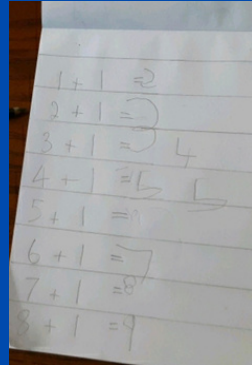 1 + 1 = 2
2 + 1 = 3
3 + 1 = 3 4
4 + 1 = 5 5
5 + 1 =
6 + 1 = 7
7 + 1 = 8
8 + 1 = 9